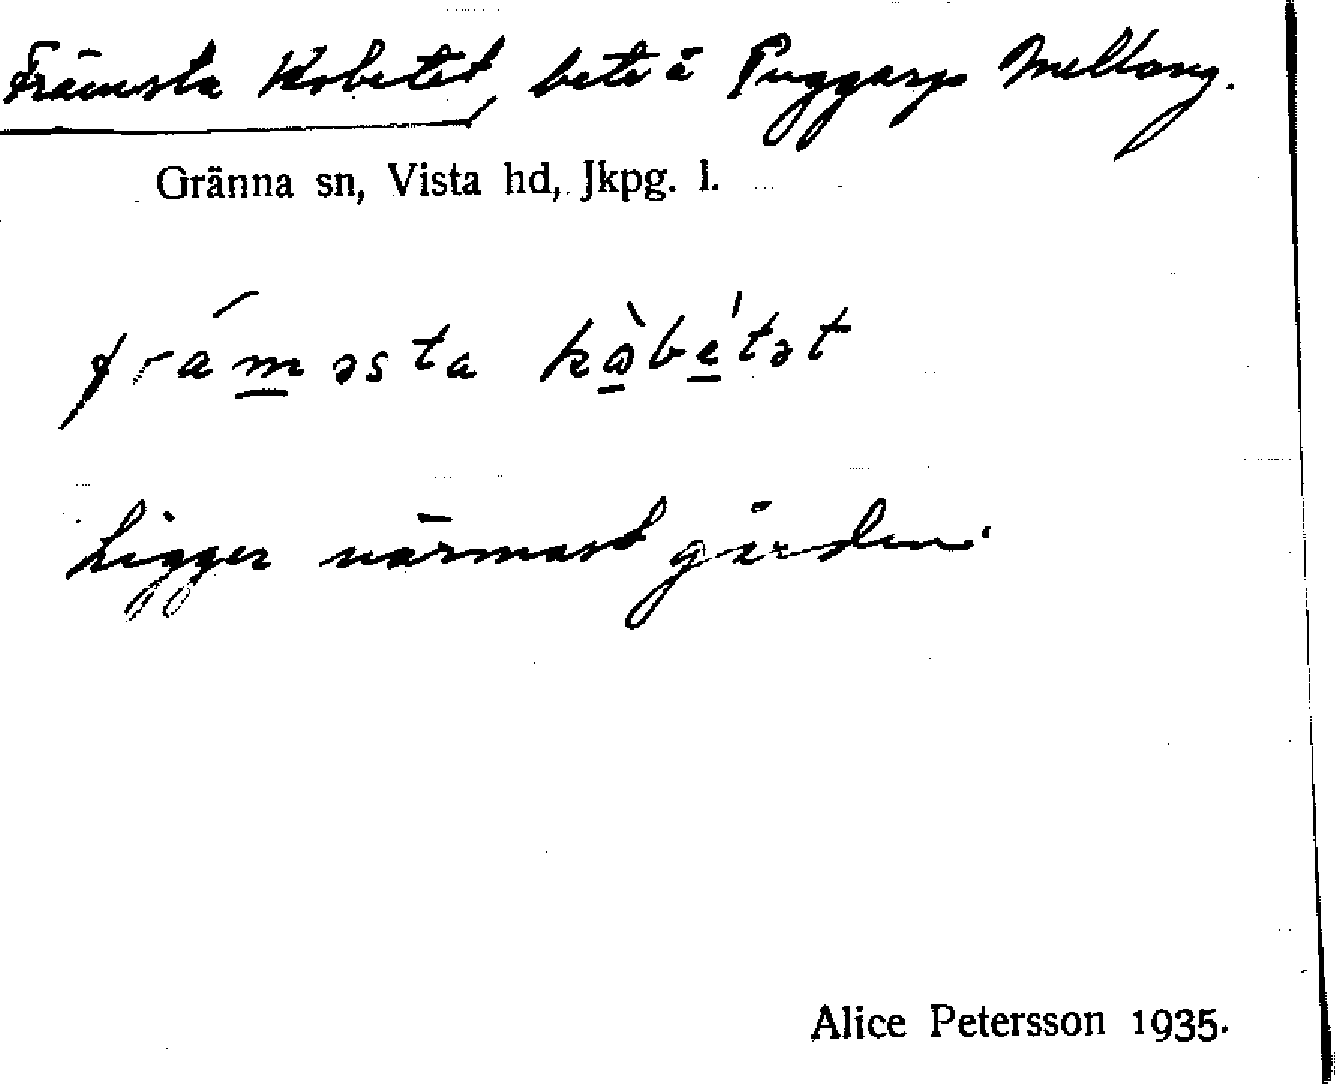 Främsta Kobetet, bete å Puggarp Mellang.
Gränna sn, Vista hd, Jkpg. l.
frám̲əsta kòb̀e̲tət
Ligger närmast gården.
Alice Petersson 1935.